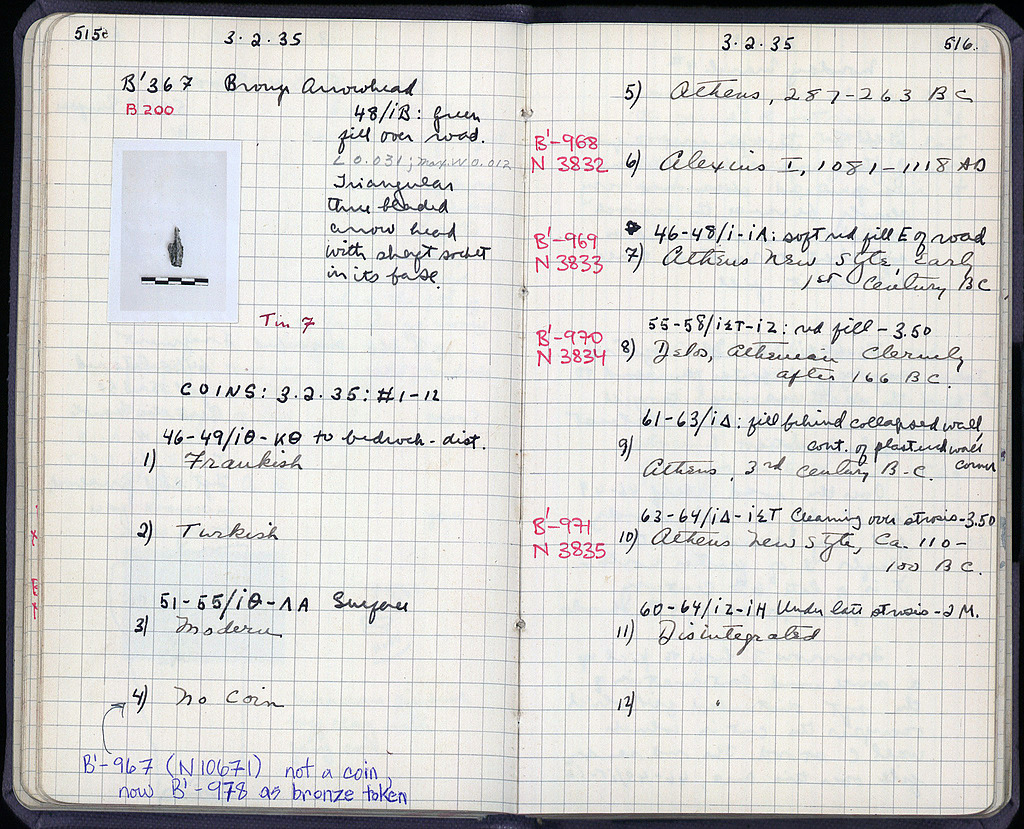 515e
3·2·35
B'367 Bronze Arrowhead
B 200
48/iB: green
fill over road.
L 0.031; max. W 0.012
Triangular
three bladed
arrow head
with shaft socket
in its base.
Tin 7
COINS: 3.2.35: #1-12
46-49/iΘ-KΘ to bedrock - dist.
1) Frankish
2) Turkish
51-55/iΘ-ΛA Surface
3) Modern
4) No coin
B'-967 (N10671) not a coin,
now B'-978 as bronze token
3·2·35
516.
5) Athens, 287-263 BC
B'-968
N 3832
6) Alexius I, 1081-1118 AD
B'-969
N 3833
46-48/i-iA: soft red fill E of road
7) Athens new style, early
1st century BC
B'-970
N 3834
55-58/iΣT-iZ: red fill - 3.50
8) Delos, Athenian Cleruchy
after 166 BC.
61-63/iΔ: fill behind collapsed wall,
cont. of plastered wall
corner
9)
Athens, 3rd century B.C.
B'-971
N 3835
63-64/iΔ-iΣT Cleaning over strosis-3.50
10) Athens new style, Ca. 110-
100 BC.
60-64/iZ-iH Under late strosis -2M.
11) Disintegrated
12)